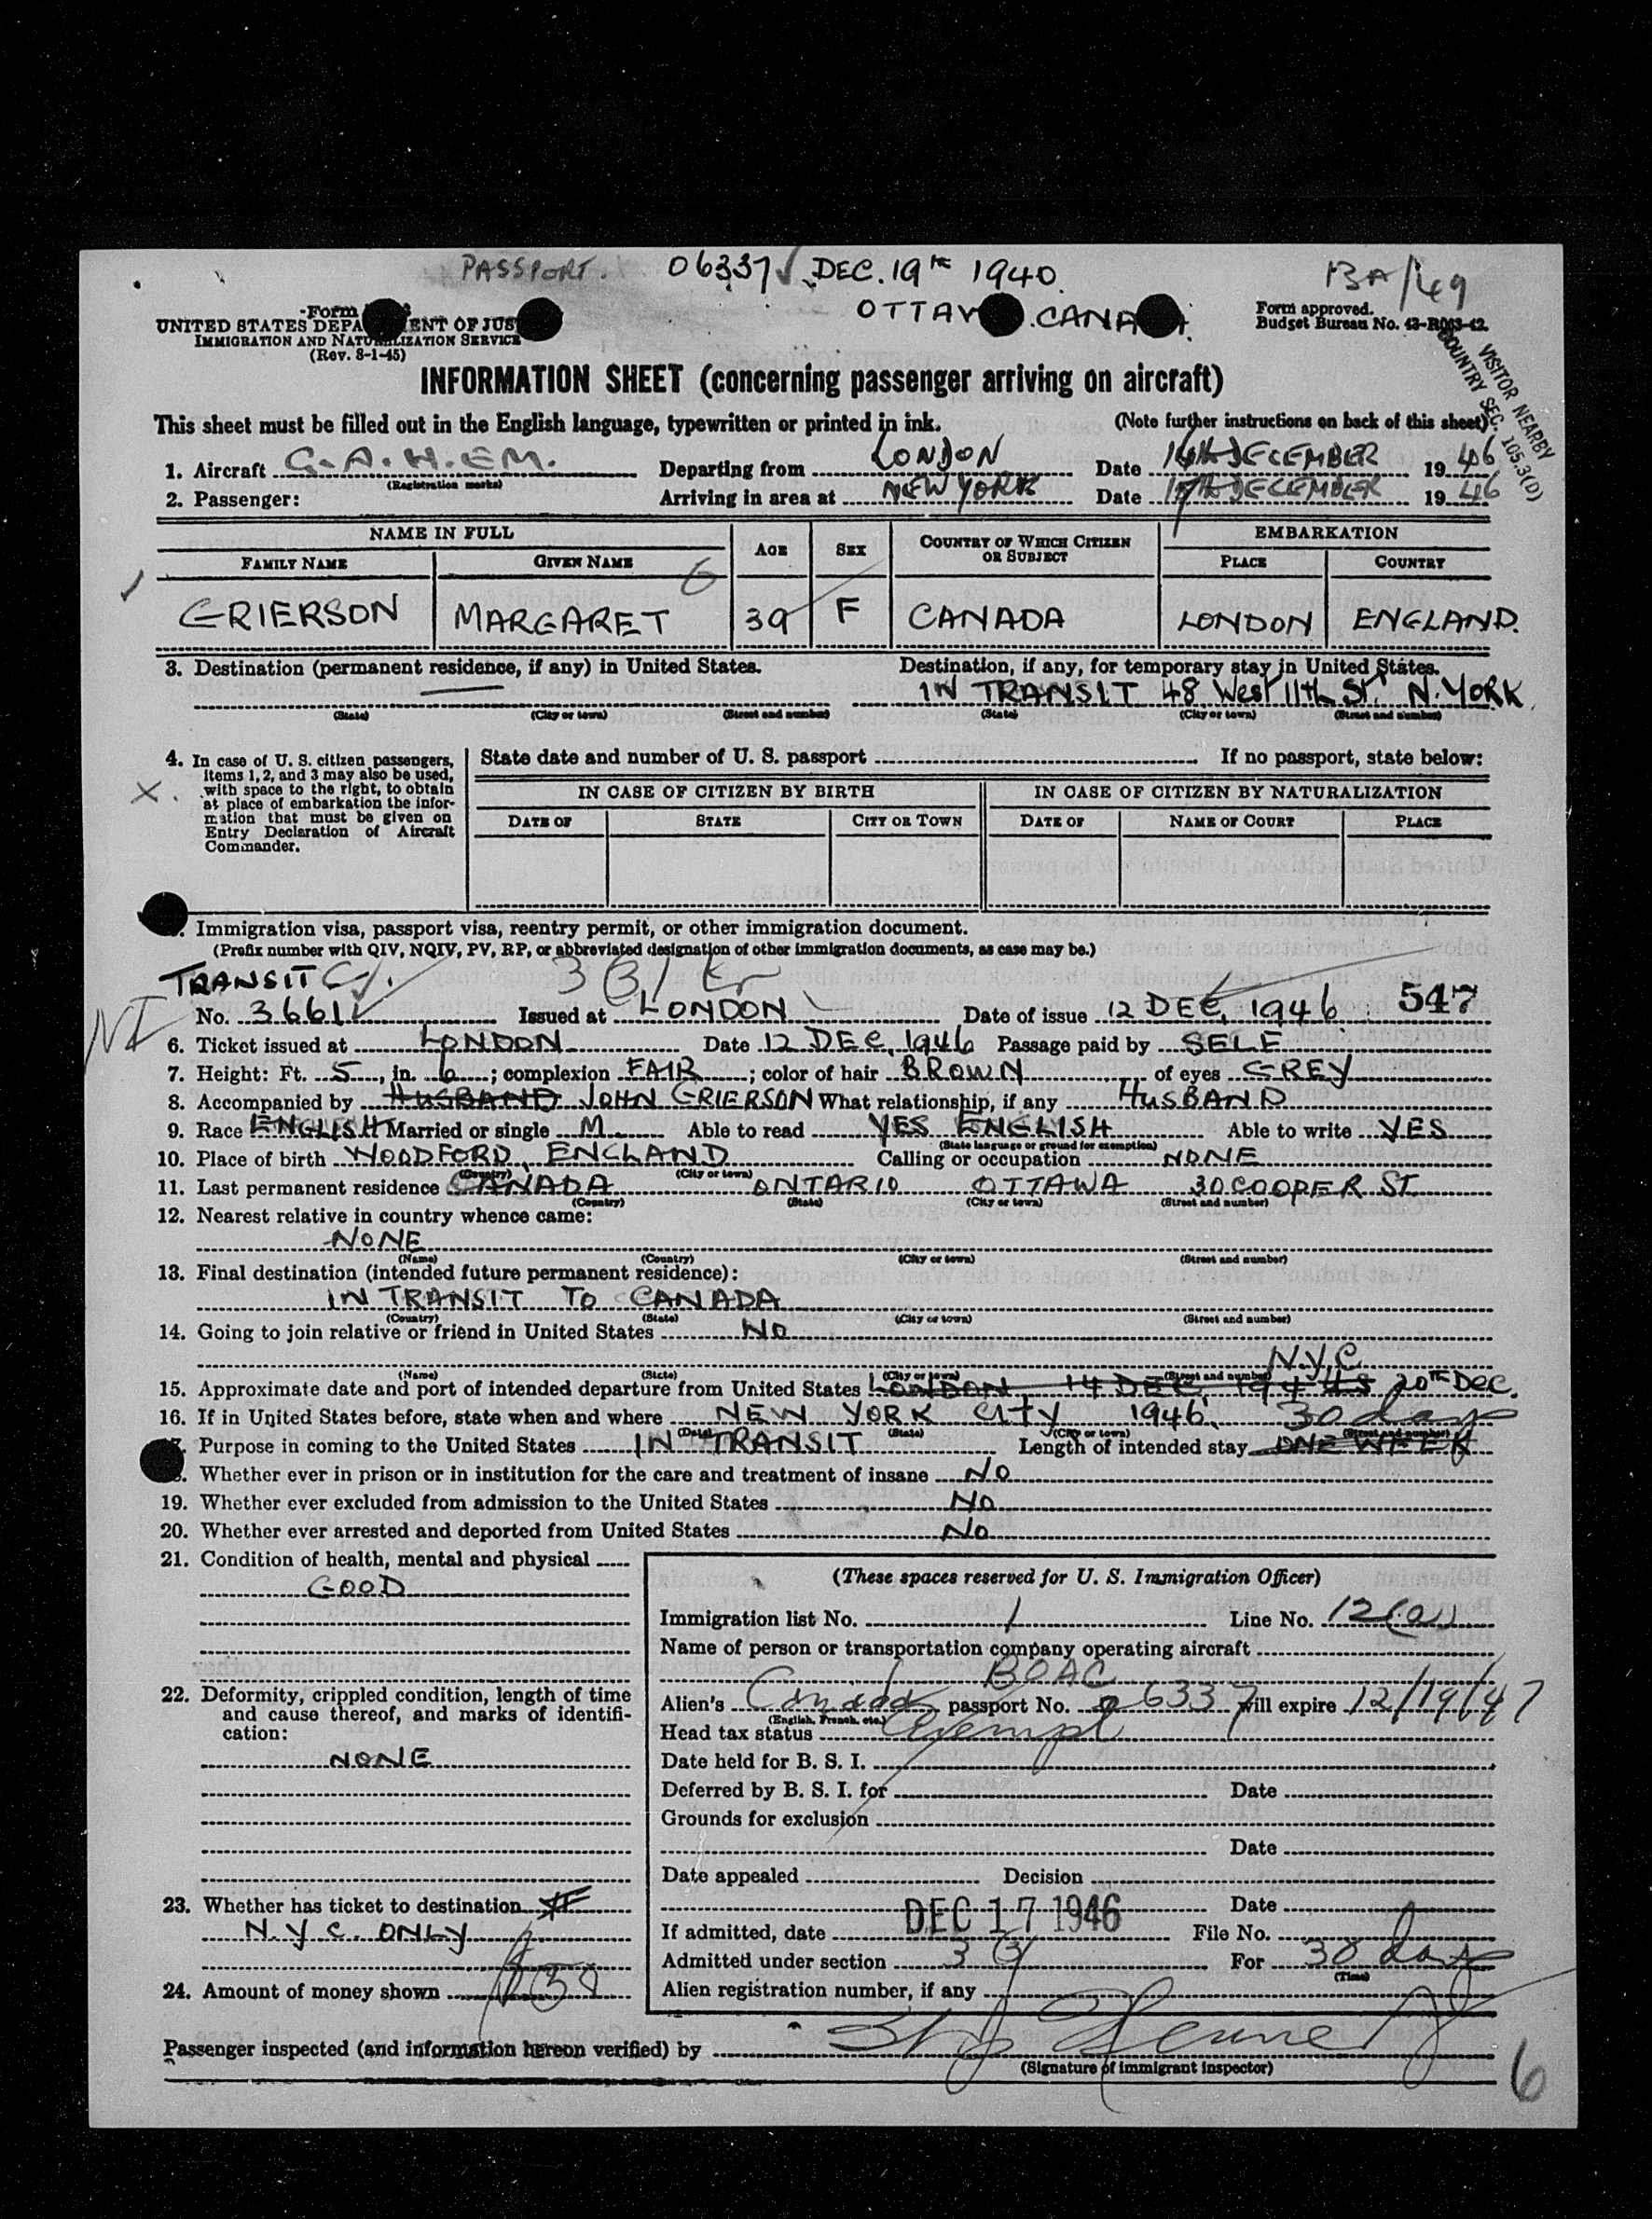 PASSPORT. 06337 DEC. 19TH 1940. BA/49
OTTAWA. CANADA.
Form
UNITED STATES DEPARTMENT OF JUSTICE
IMMIGRATION AND NATURALIZATION SERVICE
(Rev. 8-1-45)
Form approved.
Budget Bureau No. 43-R063-42.
VISITOR NEARBY
COUNTRY SEC. 105.3(D)
INFORMATION SHEET (concerning passenger arriving on aircraft)
This sheet must be filled out in the English language, typewritten or printed in ink. (Note further instructions on back of this sheet)
1. Aircraft G.A.H.EM. Departing from LONDON Date 16TH DECEMBER 1946
(Registration marks)
2. Passenger: Arriving in area at NEW YORK Date 17TH DECEMBER 1946
NAME IN FULL AGE SEX COUNTRY OF WHICH CITIZEN OR SUBJECT EMBARKATION
FAMILY NAME GIVEN NAME PLACE COUNTRY
6
GRIERSON MARGARET 39 F CANADA LONDON ENGLAND.
3. Destination (permanent residence, if any) in United States. Destination, if any, for temporary stay in United States.
IN TRANSIT 48 West 11th St. N. YORK
(State) (City or town) (Street and number) (State) (City or town) (Street and number)
4. In case of U. S. citizen passengers, items 1, 2, and 3 may also be used, with space to the right, to obtain at place of embarkation the information that must be given on Entry Declaration of Aircraft Commander.
X.
State date and number of U. S. passport If no passport, state below:
IN CASE OF CITIZEN BY BIRTH IN CASE OF CITIZEN BY NATURALIZATION
DATE OF STATE CITY OR TOWN DATE OF NAME OF COURT PLACE
Immigration visa, passport visa, reentry permit, or other immigration document.
(Prefix number with QIV, NQIV, PV, RP, or abbreviated designation of other immigration documents, as case may be.)
TRANSIT
No. 3661 Issued at LONDON Date of issue 12 DEC, 1946 547
6. Ticket issued at LONDON Date 12 DEC, 1946 Passage paid by SELF
7. Height: Ft. 5, in. 6; complexion FAIR; color of hair BROWN of eyes GREY
8. Accompanied by HUSBAND JOHN GRIERSON What relationship, if any HUSBAND
9. Race ENGLISH Married or single M Able to read YES ENGLISH Able to write YES
(State language or ground for exemption)
10. Place of birth WOODFORD, ENGLAND Calling or occupation NONE
(Country) (City or town)
11. Last permanent residence CANADA ONTARIO OTTAWA 30 COOPER ST
(Country) (State) (City or town) (Street and number)
12. Nearest relative in country whence came:
NONE
(Name) (Country) (City or town) (Street and number)
13. Final destination (intended future permanent residence):
IN TRANSIT TO CANADA
(Country) (State) (City or town) (Street and number)
14. Going to join relative or friend in United States NO
N.Y.C
(Name) (State) (City or town) (Street and number)
15. Approximate date and port of intended departure from United States LONDON, 14 DEC, 1946 20TH DEC.
16. If in United States before, state when and where NEW YORK CITY 1946. 30 days
(Date) (State) (City or town) (Street and number)
Purpose in coming to the United States IN TRANSIT Length of intended stay ONE WEEK
Whether ever in prison or in institution for the care and treatment of insane NO
19. Whether ever excluded from admission to the United States NO
20. Whether ever arrested and deported from United States NO
21. Condition of health, mental and physical
GOOD
22. Deformity, crippled condition, length of time and cause thereof, and marks of identification:
NONE
23. Whether has ticket to destination
N.Y.C. ONLY
24. Amount of money shown
(These spaces reserved for U. S. Immigration Officer)
Immigration list No. 1 Line No. 12(a)
Name of person or transportation company operating aircraft
BOAC
Alien's Canada passport No. 06337 will expire 12/19/47
(English, French, etc.)
Head tax status Exempt
Date held for B. S. I.
Deferred by B. S. I. for Date
Grounds for exclusion
Date
Date appealed Decision
Date
If admitted, date DEC 17 1946 File No.
Admitted under section 3(3) For 30 days
(Time)
Alien registration number, if any
Passenger inspected (and information hereon verified) by
(Signature of immigrant inspector)
6